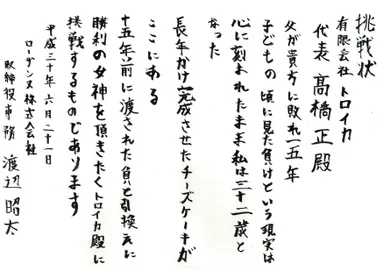 挑戦状
有限会社トロイカ
代表 髙橋正殿
父が貴方に敗れ一五年
子どもの頃に見た負けという現実は
心に刻まれたまま私は三十二歳と
なった
長年かけ完成させたチーズケーキが
ここにある
十五年前に渡された負と引換えに
勝利の女神を頂きたくトロイカ殿に
挑戦するものであります
平成三十年六月二十一日
ローダンス株式会社
取締役専務 渡辺昭太